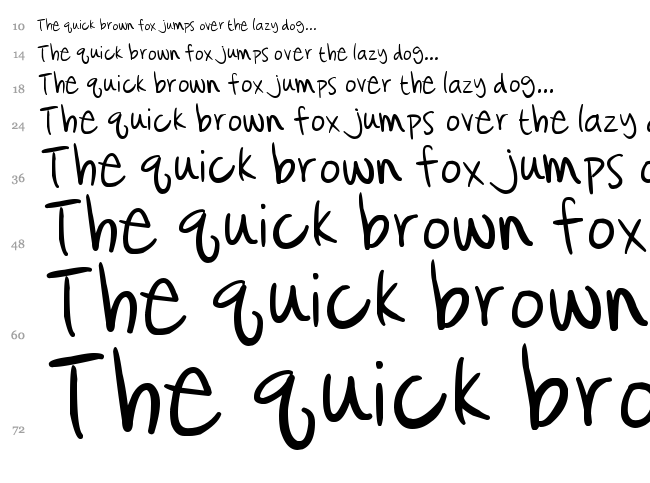 10 The quick brown fox jumps over the lazy dog...
14 The quick brown fox jumps over the lazy dog...
18 The quick brown fox jumps over the lazy dog...
24 The quick brown fox jumps over the lazy
36 The quick brown fox jumps
48 The quick brown fox
60 The quick brown
72 The quick bro